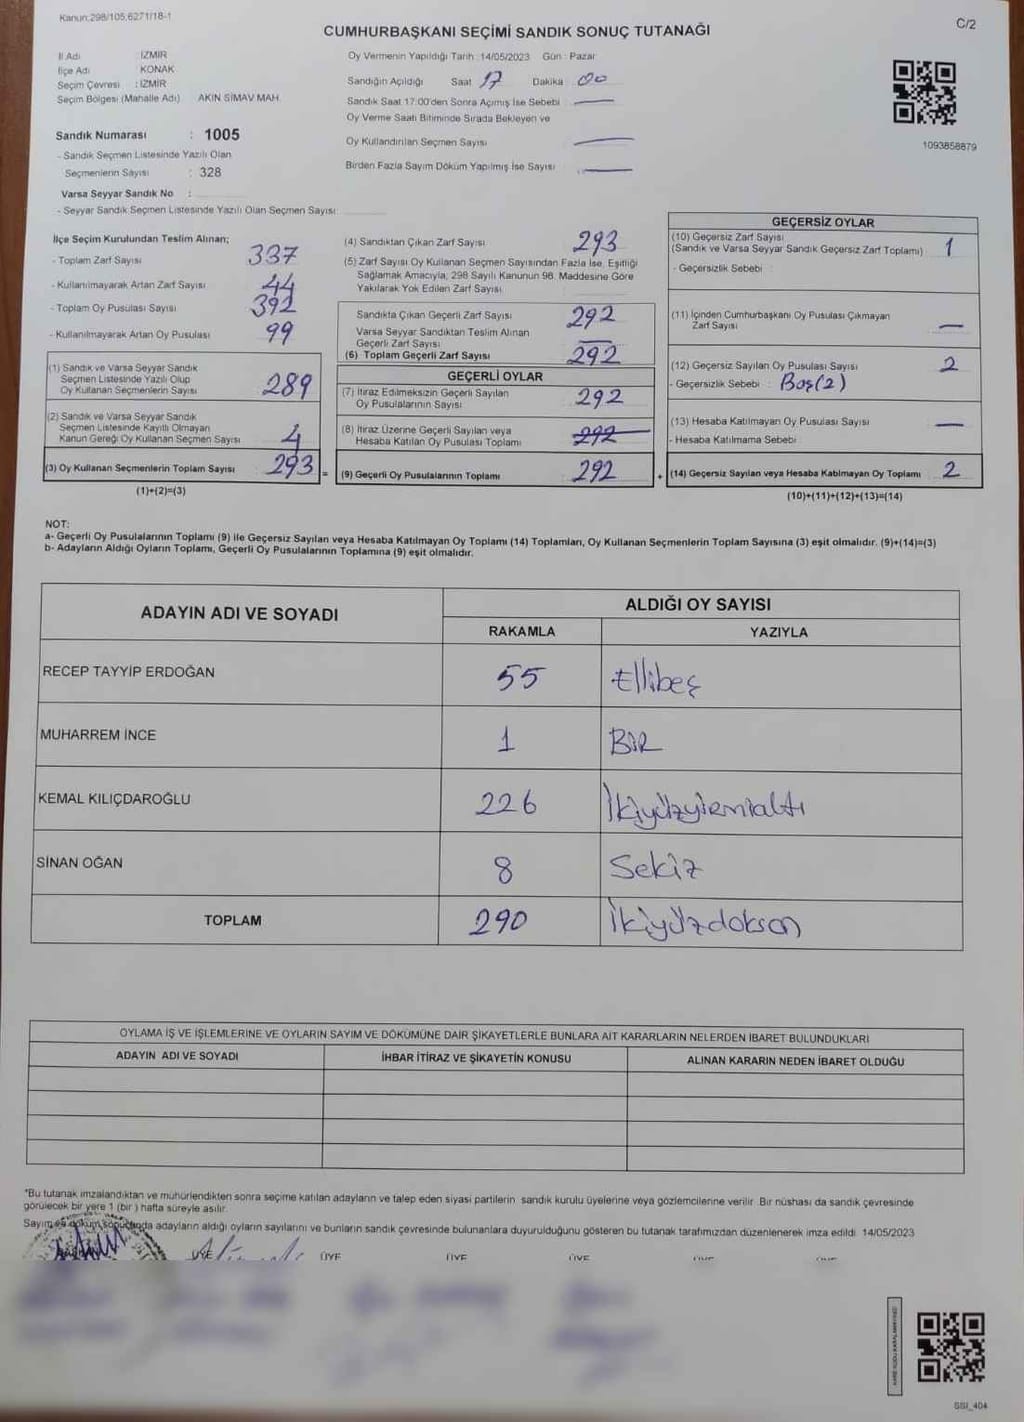 Kanun:298/105,6271/18-1
C/2
CUMHURBAŞKANI SEÇİMİ SANDIK SONUÇ TUTANAĞI
İl Adı : İZMİR
İlçe Adı : KONAK
Seçim Çevresi : İZMİR
Seçim Bölgesi (Mahalle Adı) AKIN SİMAV MAH.
Sandık Numarası : 1005
- Sandık Seçmen Listesinde Yazılı Olan
Seçmenlerin Sayısı : 328
Varsa Seyyar Sandık No :
- Seyyar Sandık Seçmen Listesinde Yazılı Olan Seçmen Sayısı
Oy Vermenin Yapıldığı Tarih :14/05/2023 Gün : Pazar
Sandığın Açıldığı Saat 17 Dakika 00
Sandık Saat 17:00'den Sonra Açılmış İse Sebebi —
Oy Verme Saati Bitiminde Sırada Bekleyen ve
Oy Kullandırılan Seçmen Sayısı —
Birden Fazla Sayım Döküm Yapılmış İse Sayısı —
1093858879
İlçe Seçim Kurulundan Teslim Alınan;
- Toplam Zarf Sayısı 337
- Kullanılmayarak Artan Zarf Sayısı 44
- Toplam Oy Pusulası Sayısı 392
- Kullanılmayarak Artan Oy Pusulası 99
(1) Sandık ve Varsa Seyyar Sandık
Seçmen Listesinde Yazılı Olup
Oy Kullanan Seçmenlerin Sayısı 289
(2) Sandık ve Varsa Seyyar Sandık
Seçmen Listesinde Kayıtlı Olmayan
Kanun Gereği Oy Kullanan Seçmen Sayısı 4
(3) Oy Kullanan Seçmenlerin Toplam Sayısı 293 =
(1)+(2)=(3)
(4) Sandıktan Çıkan Zarf Sayısı 293
(5) Zarf Sayısı Oy Kullanan Seçmen Sayısından Fazla İse, Eşitliği
Sağlamak Amacıyla, 298 Sayılı Kanunun 98. Maddesine Göre
Yakılarak Yok Edilen Zarf Sayısı
Sandıkta Çıkan Geçerli Zarf Sayısı 292
Varsa Seyyar Sandıktan Teslim Alınan
Geçerli Zarf Sayısı —
(6) Toplam Geçerli Zarf Sayısı 292
GEÇERLİ OYLAR
(7) İtiraz Edilmeksizin Geçerli Sayılan
Oy Pusulalarının Sayısı 292
(8) İtiraz Üzerine Geçerli Sayılan veya
Hesaba Katılan Oy Pusulası Toplamı 292
(9) Geçerli Oy Pusulalarının Toplamı 292 +
GEÇERSİZ OYLAR
(10) Geçersiz Zarf Sayısı
(Sandık ve Varsa Seyyar Sandık Geçersiz Zarf Toplamı) 1
- Geçersizlik Sebebi :
(11) İçinden Cumhurbaşkanı Oy Pusulası Çıkmayan
Zarf Sayısı —
(12) Geçersiz Sayılan Oy Pusulası Sayısı 2
- Geçersizlik Sebebi : Boş(2)
(13) Hesaba Katılmayan Oy Pusulası Sayısı —
- Hesaba Katılmama Sebebi
(14) Geçersiz Sayılan veya Hesaba Katılmayan Oy Toplamı 2
(10)+(11)+(12)+(13)=(14)
NOT:
a- Geçerli Oy Pusulalarının Toplamı (9) ile Geçersiz Sayılan veya Hesaba Katılmayan Oy Toplamı (14) Toplamları, Oy Kullanan Seçmenlerin Toplam Sayısına (3) eşit olmalıdır. (9)+(14)=(3)
b- Adayların Aldığı Oyların Toplamı, Geçerli Oy Pusulalarının Toplamına (9) eşit olmalıdır.
ADAYIN ADI VE SOYADI ALDIĞI OY SAYISI
RAKAMLA YAZIYLA
RECEP TAYYİP ERDOĞAN 55 Ellibeş
MUHARREM İNCE 1 BİR
KEMAL KILIÇDAROĞLU 226 İkiyüzyirmialtı
SİNAN OĞAN 8 Sekiz
TOPLAM 290 İkiyüzdoksan
OYLAMA İŞ VE İŞLEMLERİNE VE OYLARIN SAYIM VE DÖKÜMÜNE DAİR ŞİKAYETLERLE BUNLARA AİT KARARLARIN NELERDEN İBARET BULUNDUKLARI
ADAYIN ADI VE SOYADI İHBAR İTİRAZ VE ŞİKAYETİN KONUSU ALINAN KARARIN NEDEN İBARET OLDUĞU
*Bu tutanak imzalandıktan ve mühürlendikten sonra seçime katılan adayların ve talep eden siyasi partilerin sandık kurulu üyelerine veya gözlemcilerine verilir. Bir nüshası da sandık çevresinde
görülecek bir yere 1 (bir ) hafta süreyle asılır.
Sayım ve döküm sonucunda adayların aldığı oyların sayılarını ve bunların sandık çevresinde bulunanlara duyurulduğunu gösteren bu tutanak tarafımızdan düzenlenerek imza edildi. 14/05/2023
BAŞKAN ÜYE ÜYE ÜYE ÜYE
SSI_404